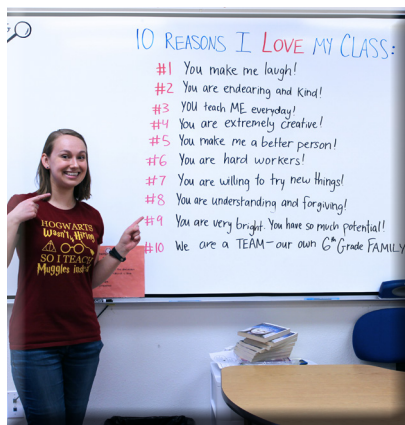 10 REASONS I LOVE MY CLASS:
#1 You make me laugh!
#2 You are endearing and kind!
#3 YOU teach ME everyday!
#4 You are extremely creative!
#5 You make me a better person!
#6 You are hard workers!
#7 You are willing to try new things!
#8 You are understanding and forgiving!
#9 You are very bright. You have so much potential!
#10 We are a TEAM - our own 6th Grade FAMILY
HOGWARTS
Wasn't Hiring
SO I TEACH
Muggles Instead